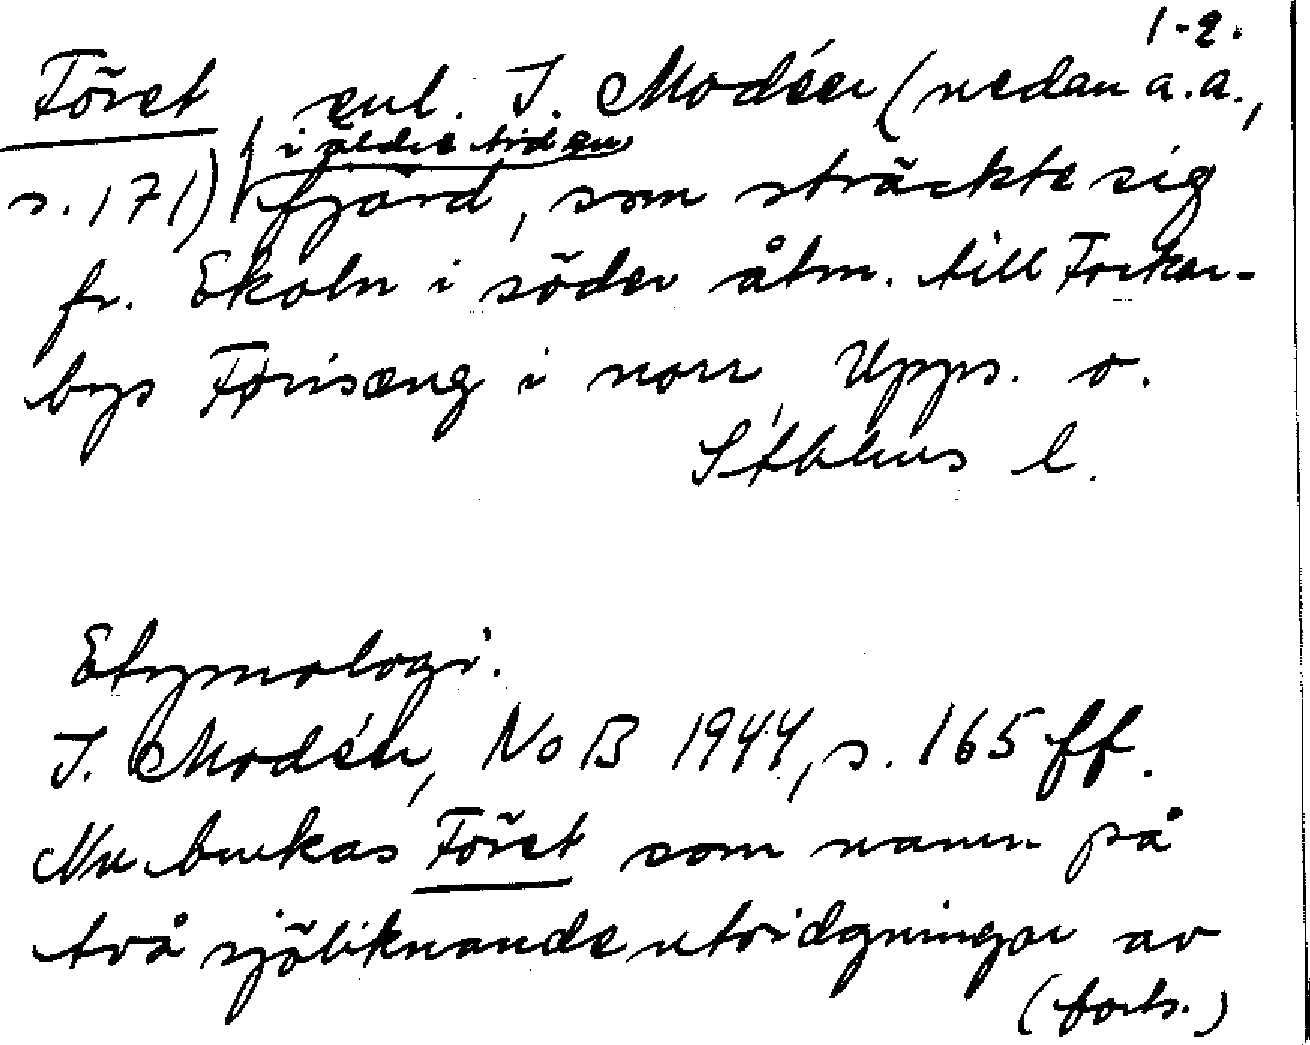 1-2.
Föret, enl. I. Modéer (nedan a.a.,
i äldre tid en
s. 171) fjärd, som sträckte sig
fr. Ekoln i söder åtm. till Forkar-
bys Førisæng i norr, Upps. o.
Sthlms l.
Etymologi.
I. Modéer, NoB 1944, s. 165 ff.
Nu brukas Föret som namn på
två sjöliknande utvidgningar av
(forts.)